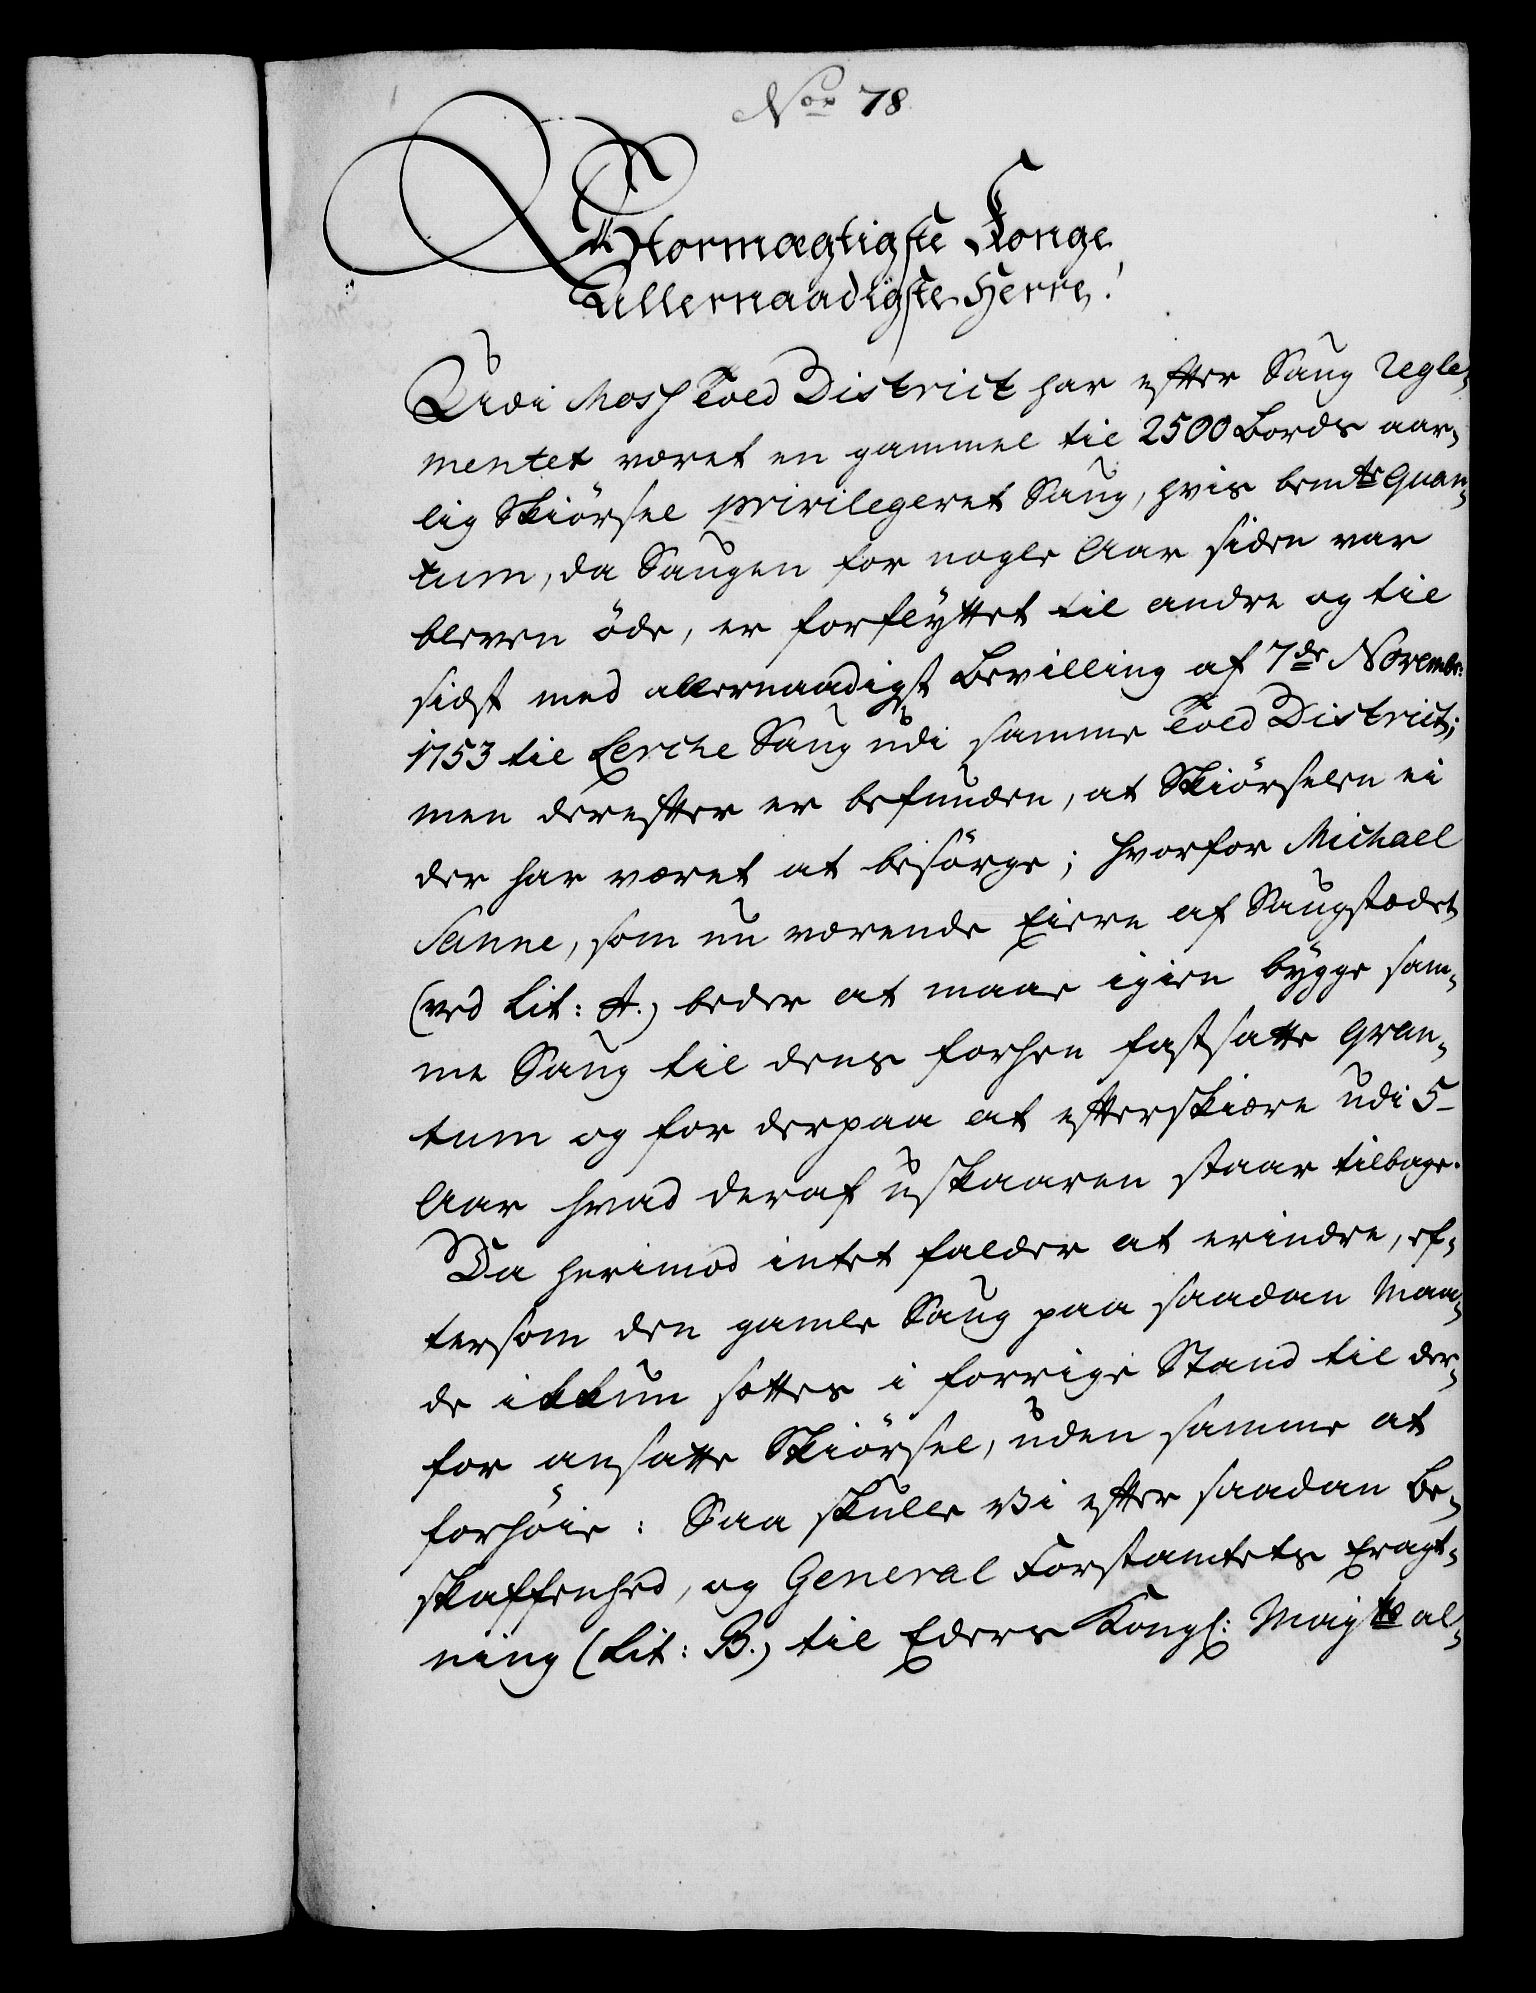 Nor 78
Stormægtigste Konge
Allernaadigste Herre!
Udi Moss Told District har efter Saug Regle-
mentet været en gammel til 2500 Bords aar-
lig Skiörsel privilegeret Saug, hvis bemte Quan-
tum, da Saugen for nogle Aar siden var
bleven öde, er forflyttet til andre og til
sidst med allernaadigst Bevilling af 7de Novembr:
1753 til Lerche Saug udi samme Told District;
men derefter er befunden, at Skiörselen ei
der har været at besörge; hvorfor Michael
Sanne, som nu værende Eiere af Saugstædet
(ved Lit: A.) beder at maae igien bygge sam-
me Saug til dens forhen fastsatte Qvan-
tum og for derpaa at efterskiære udi 5-
Aar hvad deraf uskaaren staar tilbage.
Da herimod intet falder at erindre, ef-
tersom den gamle Saug paa saadan Maa-
de ikkun sættes i forrige Stand til der-
for ansatte Skiörsel, uden samme at
forhöie: Saa skulle Vi efter saadan Be-
skaffenhed, og General Forstamtets Eragt-
ning (Lit: B.) til Eders Kongl: Mayts al-